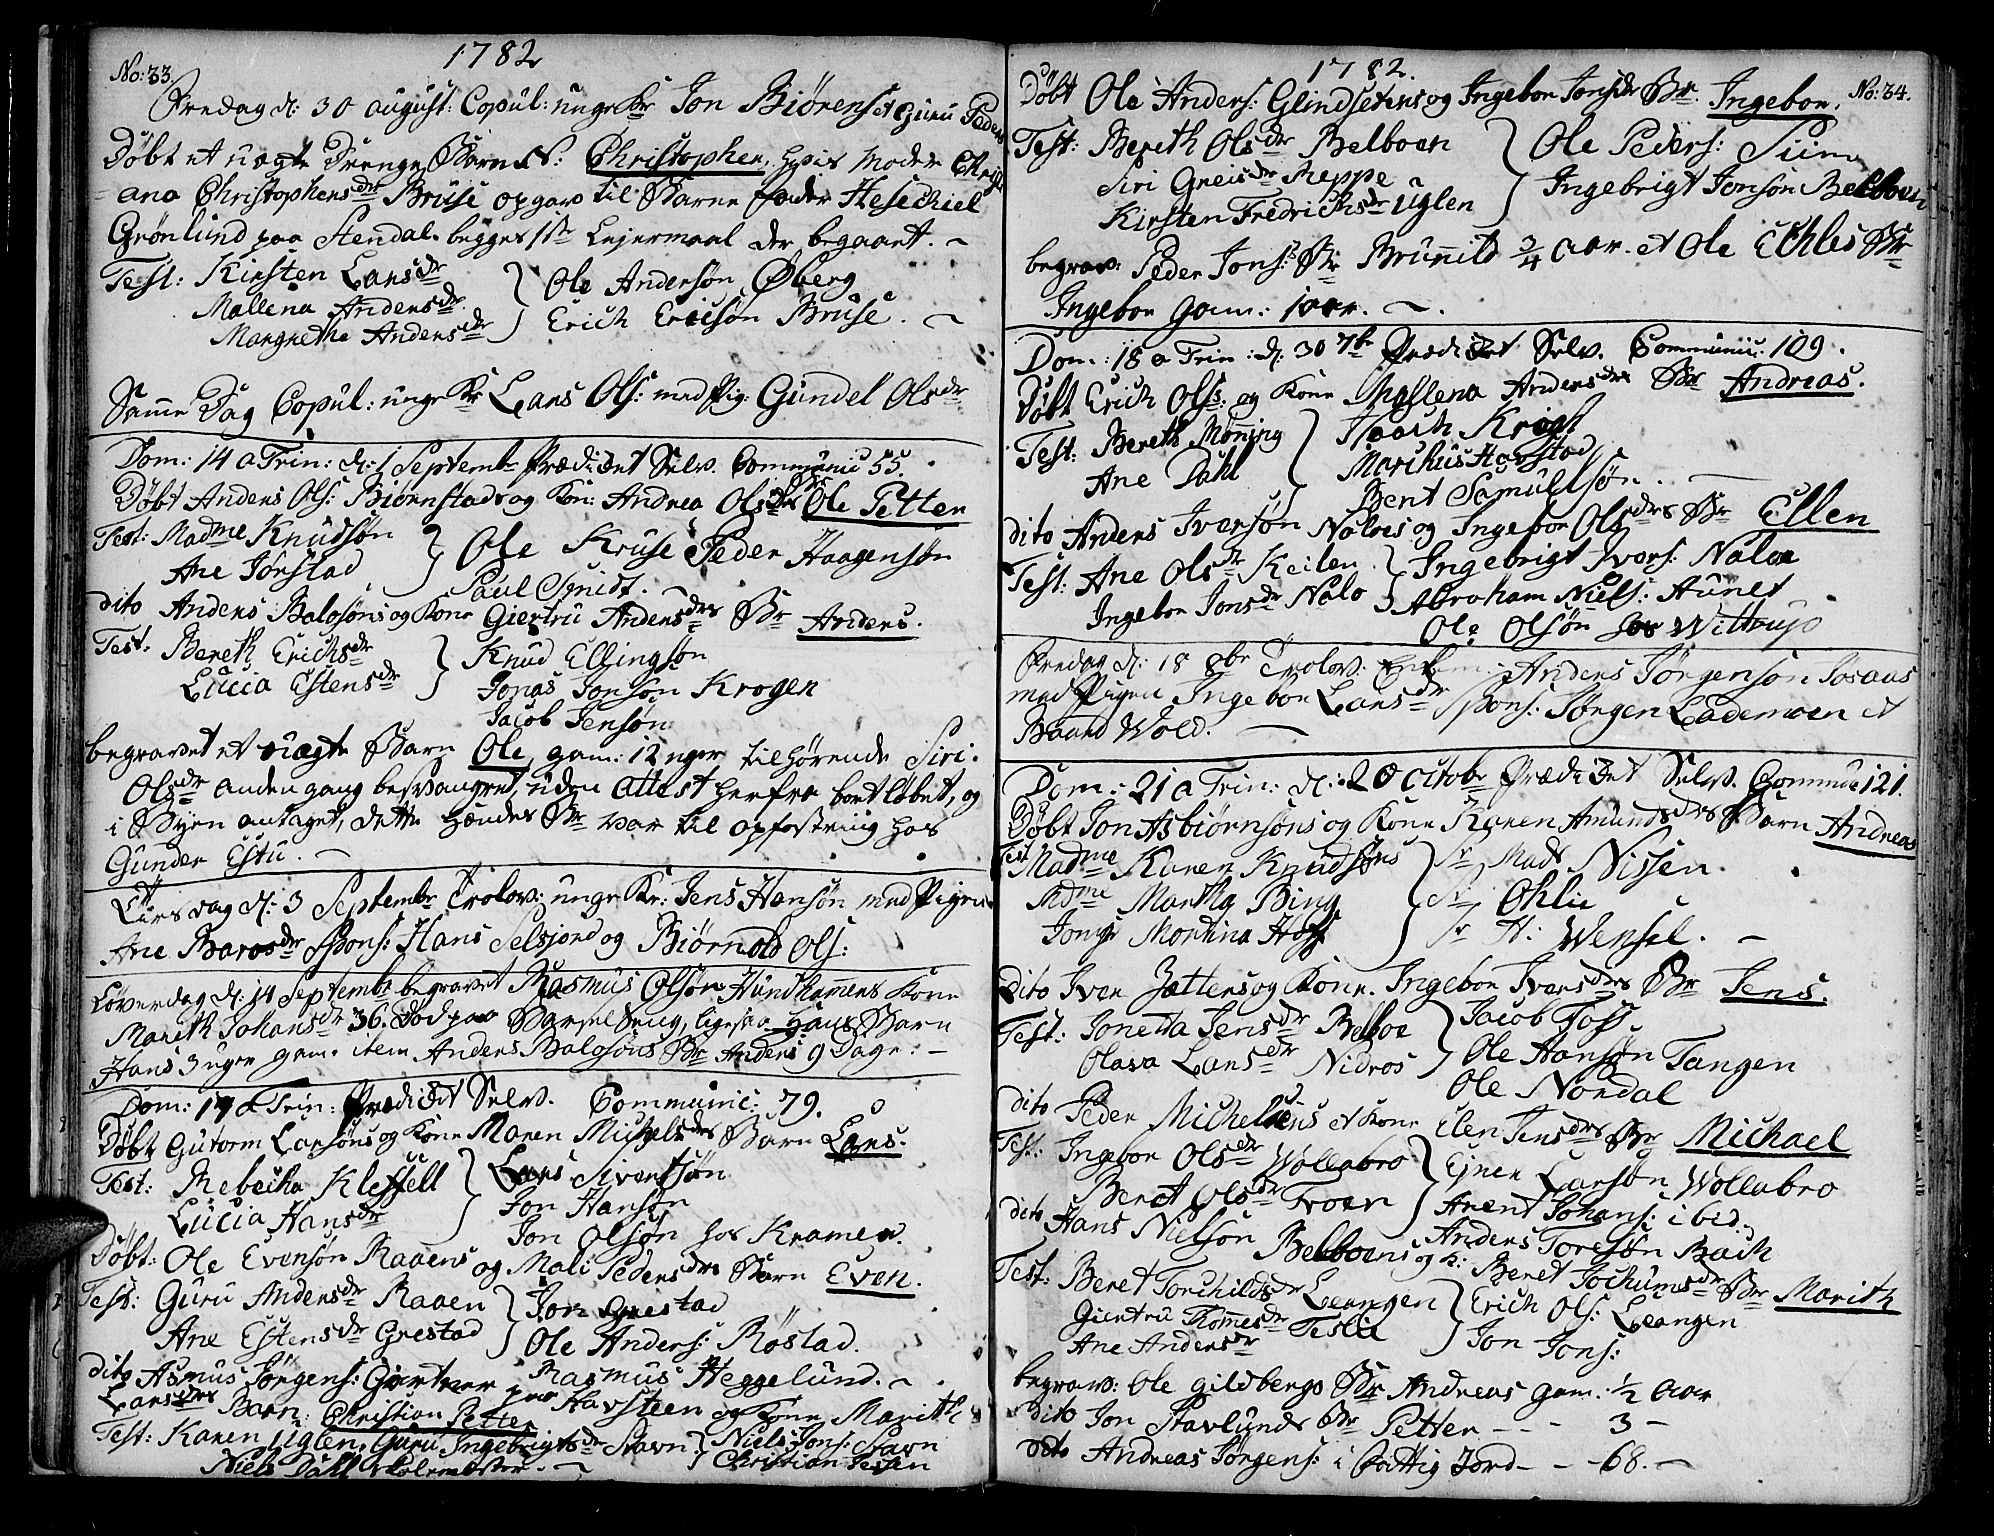 No: 33.
1782
Fredag d: 30 august: Copul: unge Kr Jon Biörens: et Guru Peders
Döbt et uægte Drenge Barn N: Christopher, hvis Moder Chri
ana Christophersdr Bruse opgav til Barne fader Hesechiel
Grönlund paa Stendal. begges 1ste Lejermaal der begaaet.
Test: Kirsten Larsdr
Mallena Andersdr
Margrethe Andersdr
Ole Andersön Öberg
Erich Ericsön Bruse.
Samme Dag Copul: unge Kr Lars Ols: med Pig: Gundel Olsdr
Dom: 14 a Trin: d: 1 Septembr Prædiket Selv. Communic 55.
Döbt Anders Ols: Biörnstads og Kon: Andrea Olsdrs Br Ole Petter
Test: Madme Knudsön
Ane Jörstad
Ole Kruse Peder Haagensön
Paul Smidt.
dito Anders Balosöns og Kone Giertru Andersdrs Br Anders.
Test: Bereth Erichsdr
Lucia Estensdr
Knud Ellingsön
Jonas Jonsön Krogen
Jacob Jensön
begravet et uægte Barn Ole, gam: 12 uger tilhörende Siri
Olsdr anden gang besvangret, uden attest herfra bortlöbet, og
i Byen antaget, dette hendes Br var til opfostring hos
Gunder Estu.
Tirsdag d: 3 Septembr Trolov: unge Kr: Jens Hansön med Pigen
Ane Barosdr Spons: Hans Selsjord og Biörnold Ols:
Löverdag d: 14 Septembr begravet Rasmus Olsön Hundhamrens Kone
Marith Johansdr 36. Död paa Barselseng, ligesaa hans Barn
Hans 3 uger gam. item Anders Balosöns Br Anders 9 Dage.
Dom: 17 a Trin: Prædiket Selv. Communic: 79.
Döbt Gutorm Larsöns og Kone Maren Michelsdrs Barn Lars.
Test: Rebecha Kleffell
Lucia Hansdr
Lars Sivertsön
Jon Hansön
Jon Olsön hos Kramer.
Döbt: Ole Evensön Raaens og Mali Pedersdrs Barn Even.
Test: Guru Andersdr Raaen
Ane Estensdr Grestad
Jon Grestad
Ole Anders: Röstad.
Rasmus Heggelund.
dito Asmus Jörgens: Giertner paa Havsteen og Kone Marith
Larsdrs Barn: Christian Petter
Test: Karen Uglen, Guru Ingebrigtsdr Stavn
Niels Dall Skolemester.
Niels Jons: Stavn
Christian Jesen
1782.
No: 34.
Döbt Ole Anders: Glindsetens og Ingebor Jonsdr Br. Ingebor.
Test: Bereth Olsdr Belboen
Siri Greisdr Reppe
Kirsten Fredrichsdr Uglen
Ole Peders: Siim
Ingebrigt Jonsön Belboen
begrav: Peder Jons: Br Brunild 3/4 aar. et Ole Echles Br
Ingebor gam: 1 aar.
Dom: 18 a Trin: d: 30 7br Prædiket Selv. Communic: 109.
Döbt Erich Ols: og Kone Mallena Andersdrs Br Andreas.
Test: Bereth Möning
Ane Dahl
Haach Krogh
Marchus Havstad
Bent Samuelsön.
dito Anders Iversön Naloes og Ingebor Olsdrs Br Ellen
Test: Ane Olsdr Keilen
Ingebor Jonsdr Nalo
Ingebrigt Ivers: Naloe
Abraham Niels: Aunet
Ole Olsön Wittrup
Fredag d: 18 8br Trolov: Anders Jörgensön Josaas
med Pigen Ingebor Larsdr Spons: Jörgen Lademoen et
Baard Wold.
Dom: 21 a Trin: d: 20 Octobr Prædiket Selv. Communic 121.
Döbt Jon Asbiörnsöns og Kone Karen Amundsdrs Barn Andreas
Test Madme Karen Knudsöns
Mdme Martha Bing
Jomfr Martina Hoff
Sr Mads Nissen.
Sr Ohlie
Sr H: Wensel.
Dito Iver Jættens og Kone. Ingebor Iversdrs Br Jens.
Test: Jonetta Jensdr Belboe
Olava Larsdr Nidros
Jacob Foss.
Ole Hansön Tangen
Ole Nordal
dito Peder Michelsens et Kone Elen Jensdrs Br Michael
Test: Ingebor Olsdr Wollabro
Beret Olsdr Troen
Ejner Larsön Wollabro
Arent Johans: ibid.
Anders Toresön Bach
dito Hans Nielsön Belboens og K: Beret Jochumsdr Br Marith
Test: Beret Torchildsdr Leangen
Giertru Thommesdr Teslie
Ane Andersdr
Erich Ols: Leangen
Jon Jons:
begrav: Ole Gildbergs Br Andreas gam: 1/2 aar
dito Jon Stavlunds Br Petter - - 3 -
dito Andreas Jörgens: i Fattig Jord - - 68. -